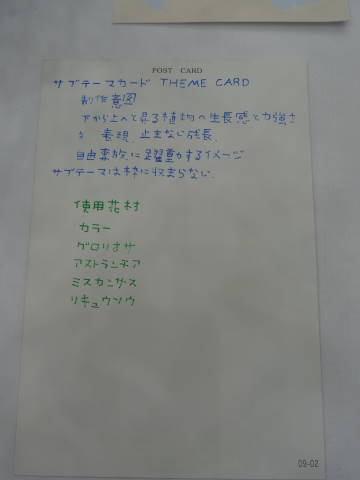 POST CARD
サブテーマカード THEME CARD
制作意図
下から上へと昇る植物の生長感と力強さ
を 表現、止まない成長、
自由奔放に躍動するイメージ
サブテーマは枠に収まらない
使用花材
カラー
グロリオサ
アストランチア
ミスカンサス
リキュウソウ
09-02